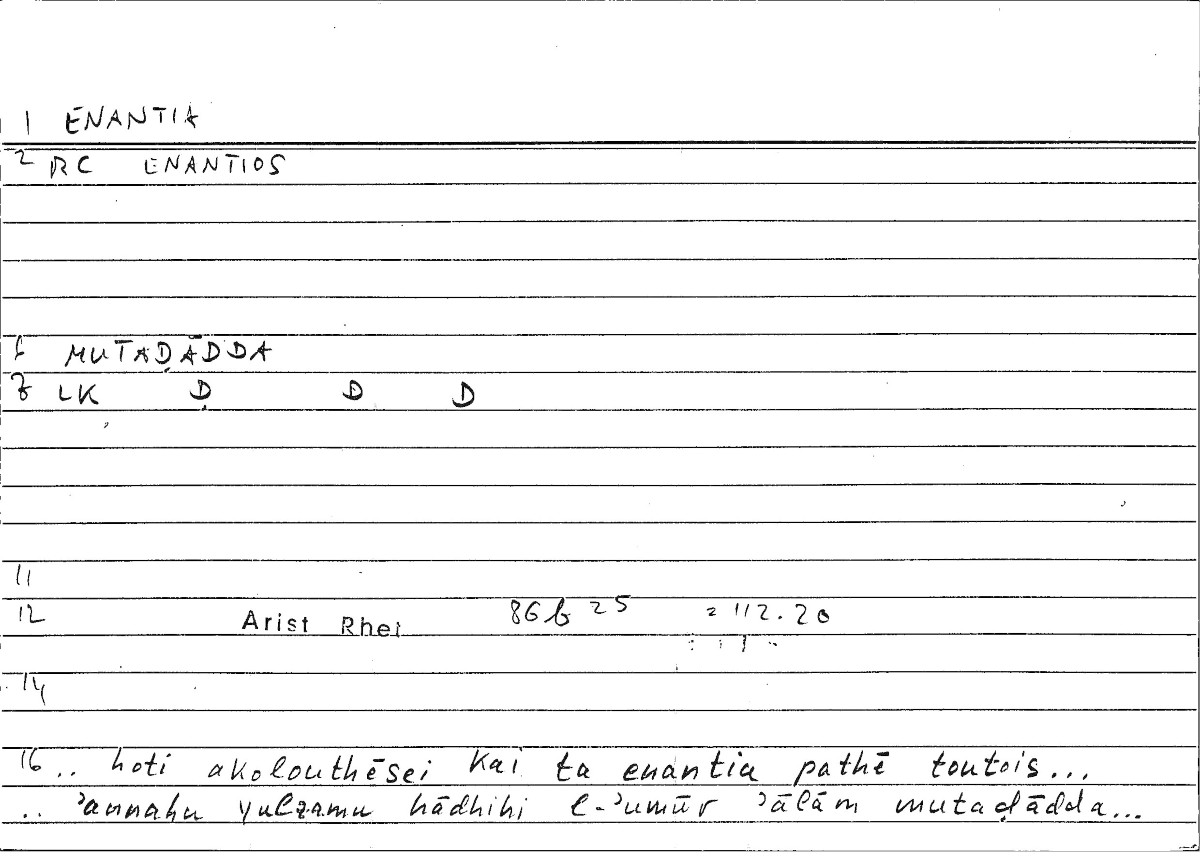 1 ENANTIA
2 RC ENANTIOS
6 MUTAḌĀDDA
7 LK Ḍ D D
11
12 Arist Rhet 86b25 = 112.20
14
16 .. hoti akolouthēsei kai ta enantia pathē toutois...
.. ʾannahu yulzamu hādhihi l-ʾumūr ʾālām mutaḍādda...